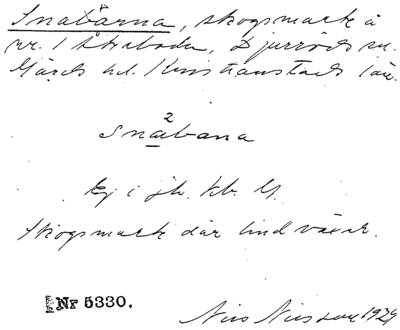 Snabårna, skogsmark å
nr. 1 Åkaboda, Djurröds sn.
Gärds hd. Kristianstads län.
2
Snabana
Ej i jk. kb. G.
Skogsmark där lind växer.
Nr 5330.
Nils Nilsson 1929